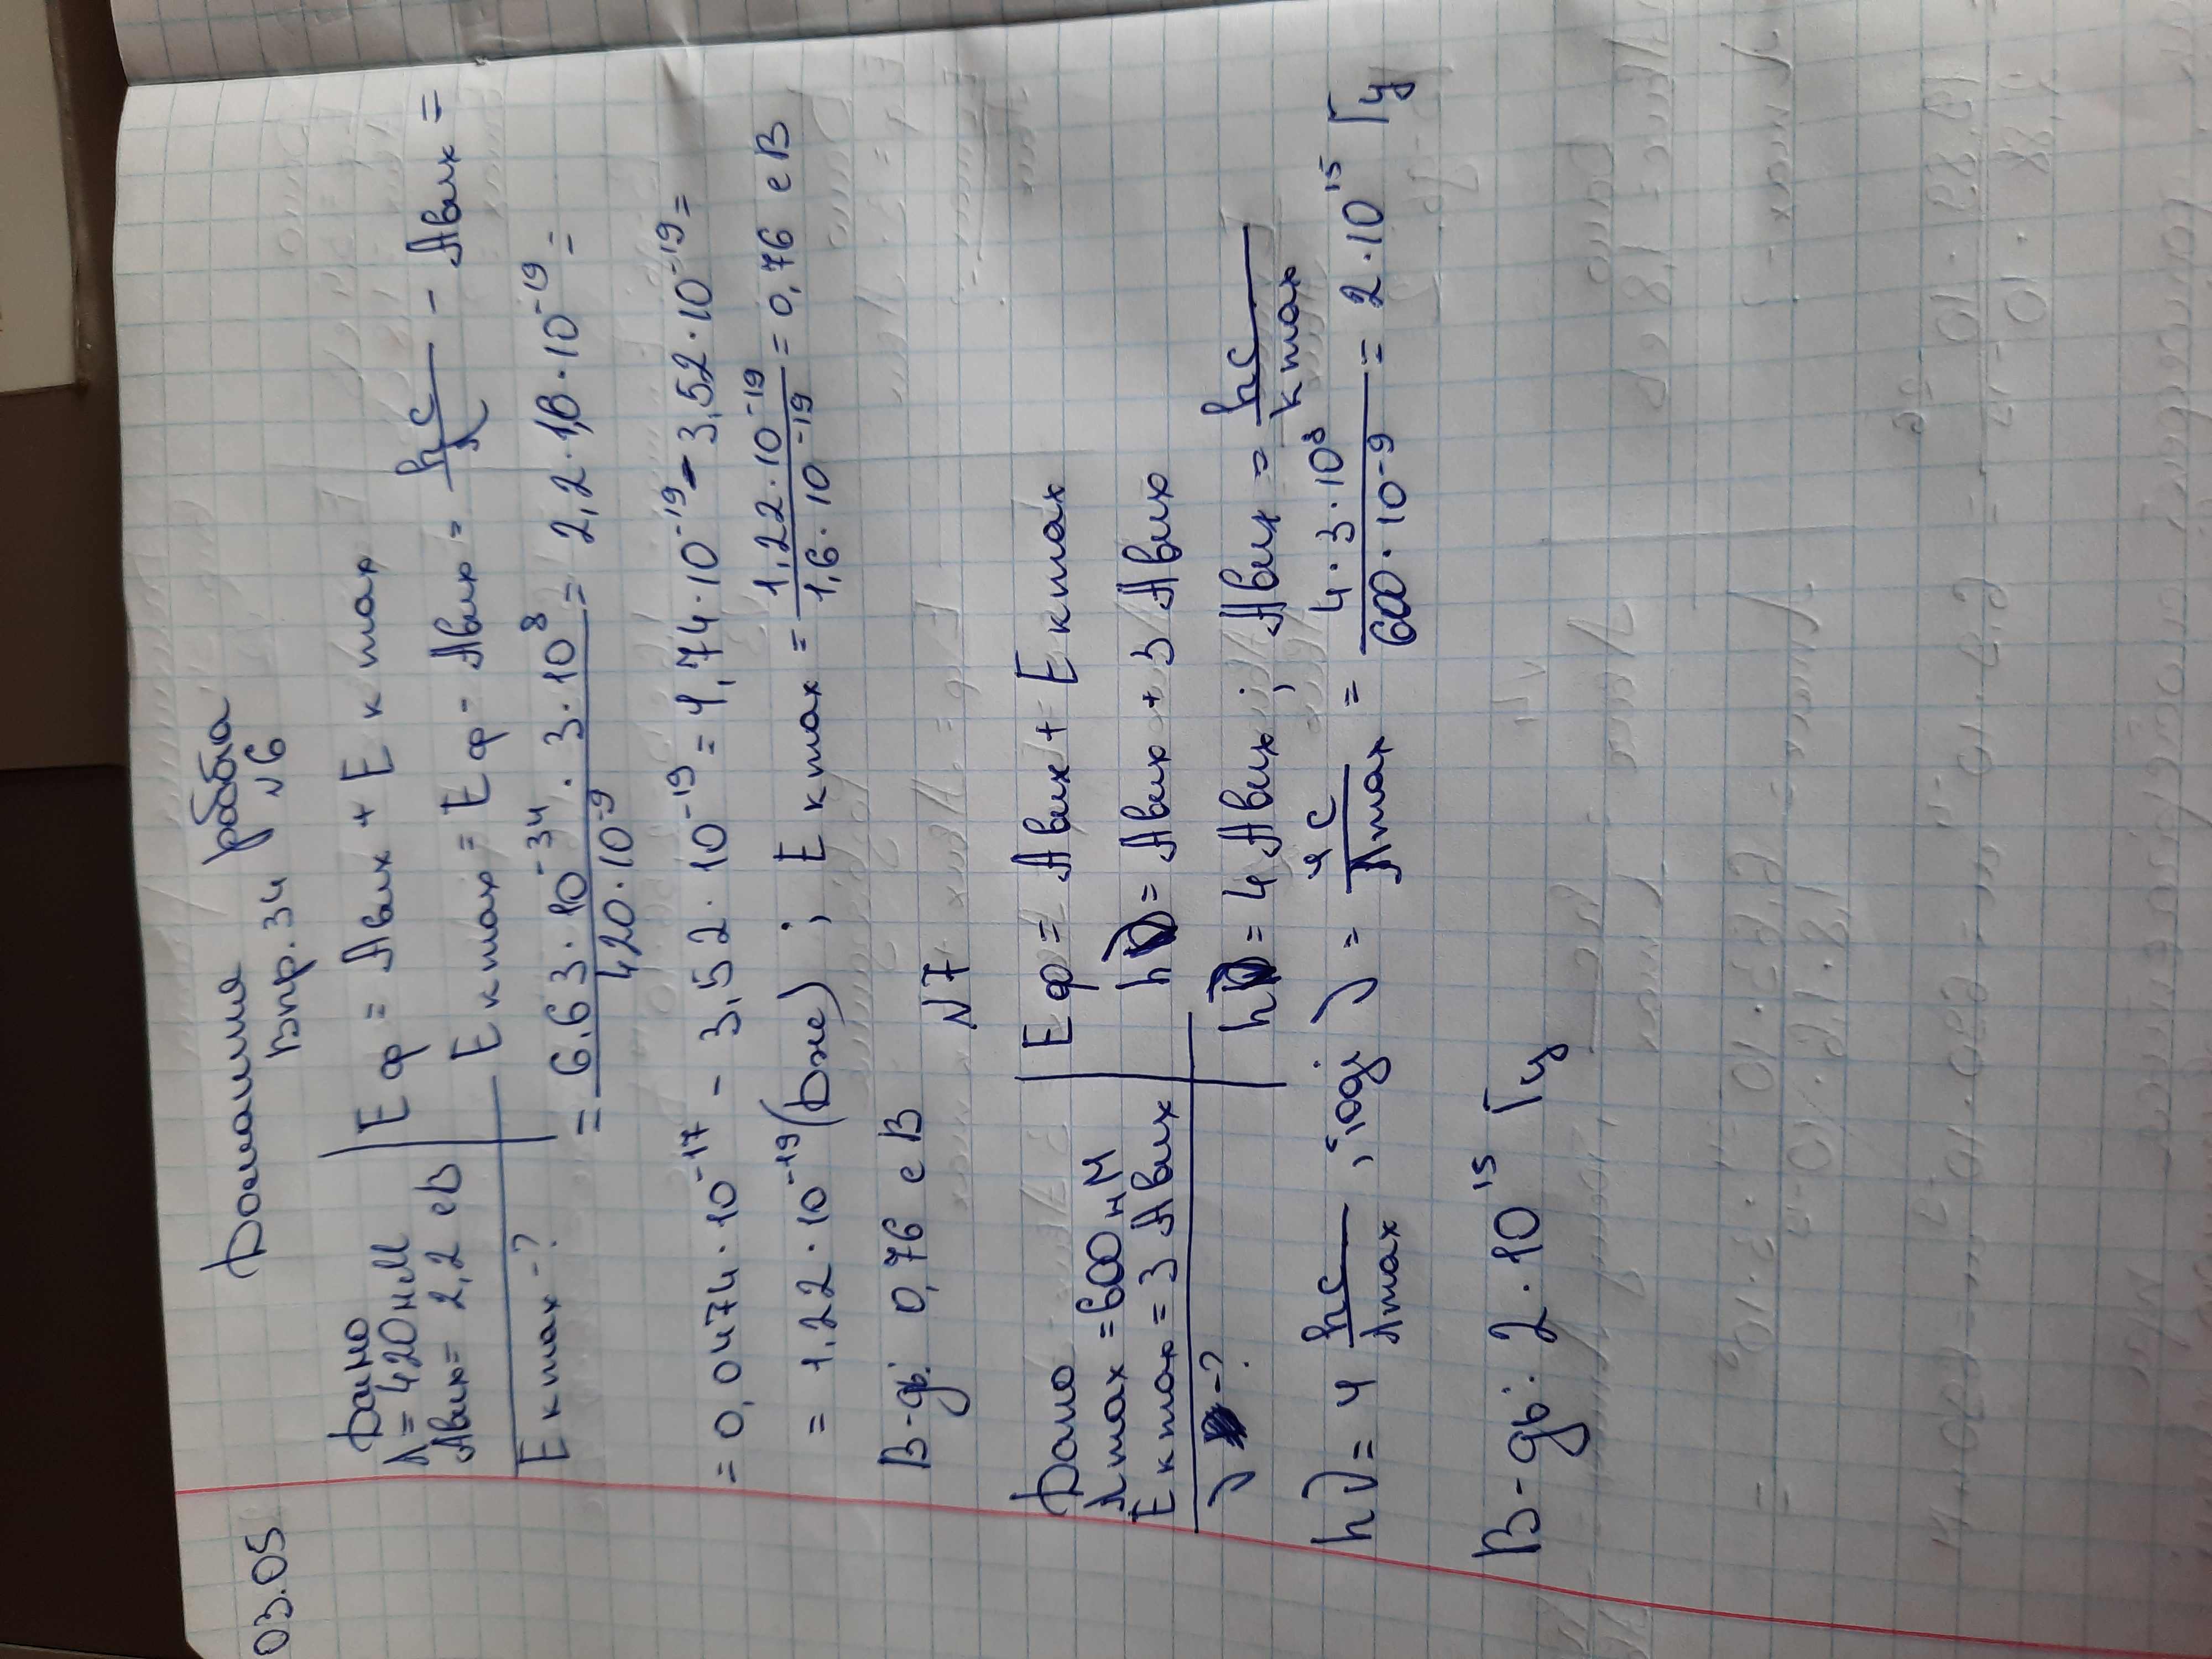 03.05
Домашня робота
Впр. 34 №6
Дано
λ = 420 нм
Авих = 2,2 еВ
Е к max - ?
Е ф = Авих + Е к max
Е к max = Е ф - Авих = hc/λ - Авих =
= 6,63 · 10⁻³⁴ · 3 · 10⁸ / 420 · 10⁻⁹ = 2,2 · 1,6 · 10⁻¹⁹ =
= 0,0474 · 10⁻¹⁷ - 3,52 · 10⁻¹⁹ = 4,74 · 10⁻¹⁹ - 3,52 · 10⁻¹⁹ =
= 1,22 · 10⁻¹⁹ (Дж) ; Е к max = 1,22 · 10⁻¹⁹ / 1,6 · 10⁻¹⁹ = 0,76 еВ
В-дь: 0,76 еВ
№7
Дано
λmax = 600 нМ
Е к max = 3 Авих
ν - ?
Е ф = Авих + Е к max
hν = Авих + 3 Авих
hν = 4 Авих ; Авих = hc / k max
hν = 4 hc / λmax , тоді ν = 4c / λmax = 4 · 3 · 10⁸ / 600 · 10⁻⁹ = 2 · 10¹⁵ Гц
В-дь: 2 · 10¹⁵ Гц